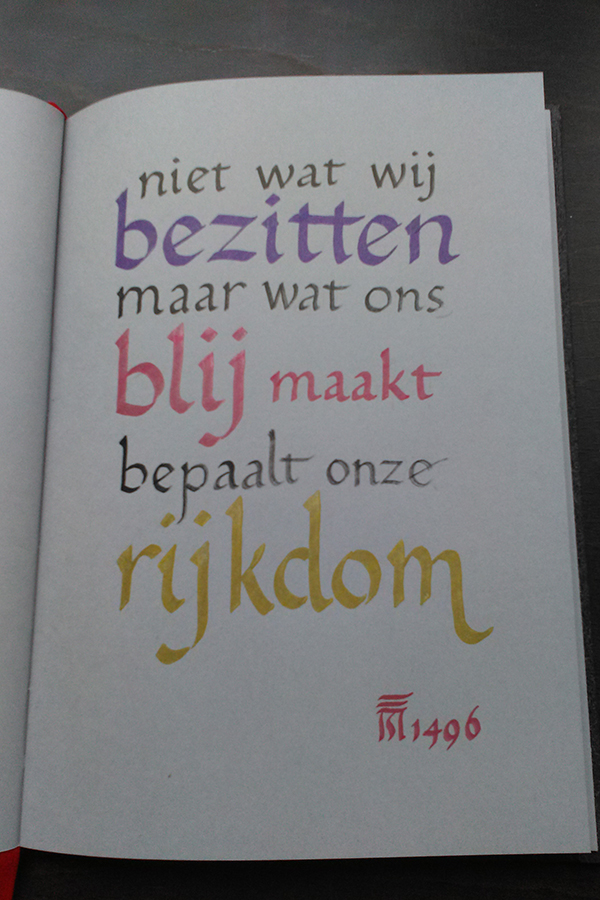 niet wat wij
bezitten
maar wat ons
blij maakt
bepaalt onze
rijkdom
1496